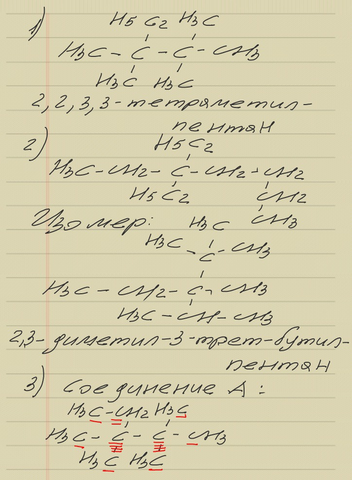 1)
H5C2 H3C
H3C - C - C - CH3
H3C H3C
2,2,3,3-тетраметил-
пентан
2)
H5C2
H3C-CH2-C-CH2-CH2
H5C2 CH2
Изомер: H3C CH3
H3C - C - CH3
H3C - CH2 - C - CH3
H3C - CH - CH3
2,3-диметил-3-трет-бутил-
пентан
3) Соединение А:
H3C-CH2 H3C
H3C - C - C - CH3
H3C H3C